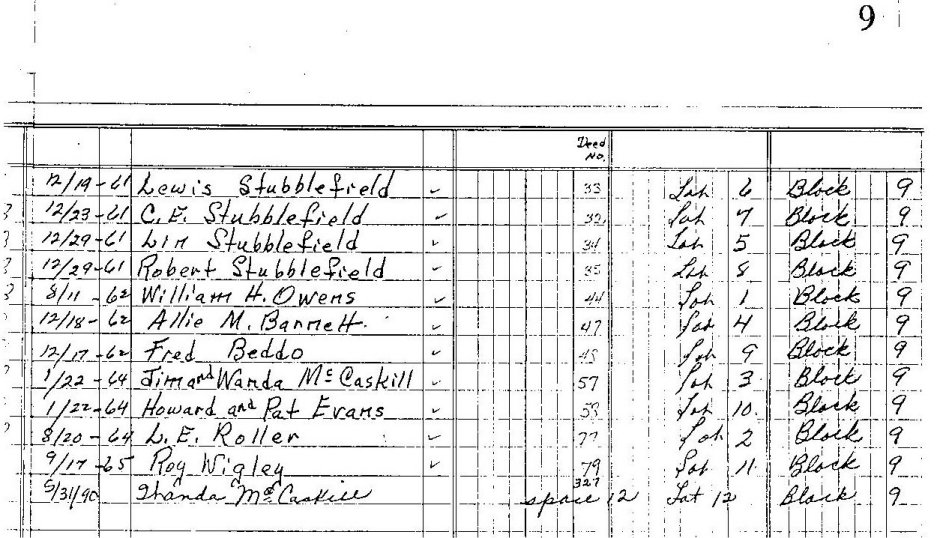 9
Deed No.
12/19-61 Lewis Stubblefield ✓ 33 Lot 6 Block 9
12/23-61 C.E. Stubblefield ✓ 32 Lot 7 Block 9
12/29-61 Lin Stubblefield ✓ 34 Lot 5 Block 9
12/29-61 Robert Stubblefield ✓ 35 Lot 8 Block 9
8/11-62 William H. Owens ✓ 44 Lot 1 Block 9
12/18-62 Allie M. Barnett ✓ 47 Lot 4 Block 9
12/17-62 Fred Beddo ✓ 48 Lot 9 Block 9
1/22-64 Jim and Wanda McCaskill ✓ 57 Lot 3 Block 9
1/22-64 Howard and Pat Evans ✓ 58 Lot 10 Block 9
8/20-64 L.E. Roller ✓ 77 Lot 2 Block 9
9/17-65 Roy Wigley ✓ 79 Lot 11 Block 9
327
5/31/90 McCaskill space 12 Lot 12 Block 9